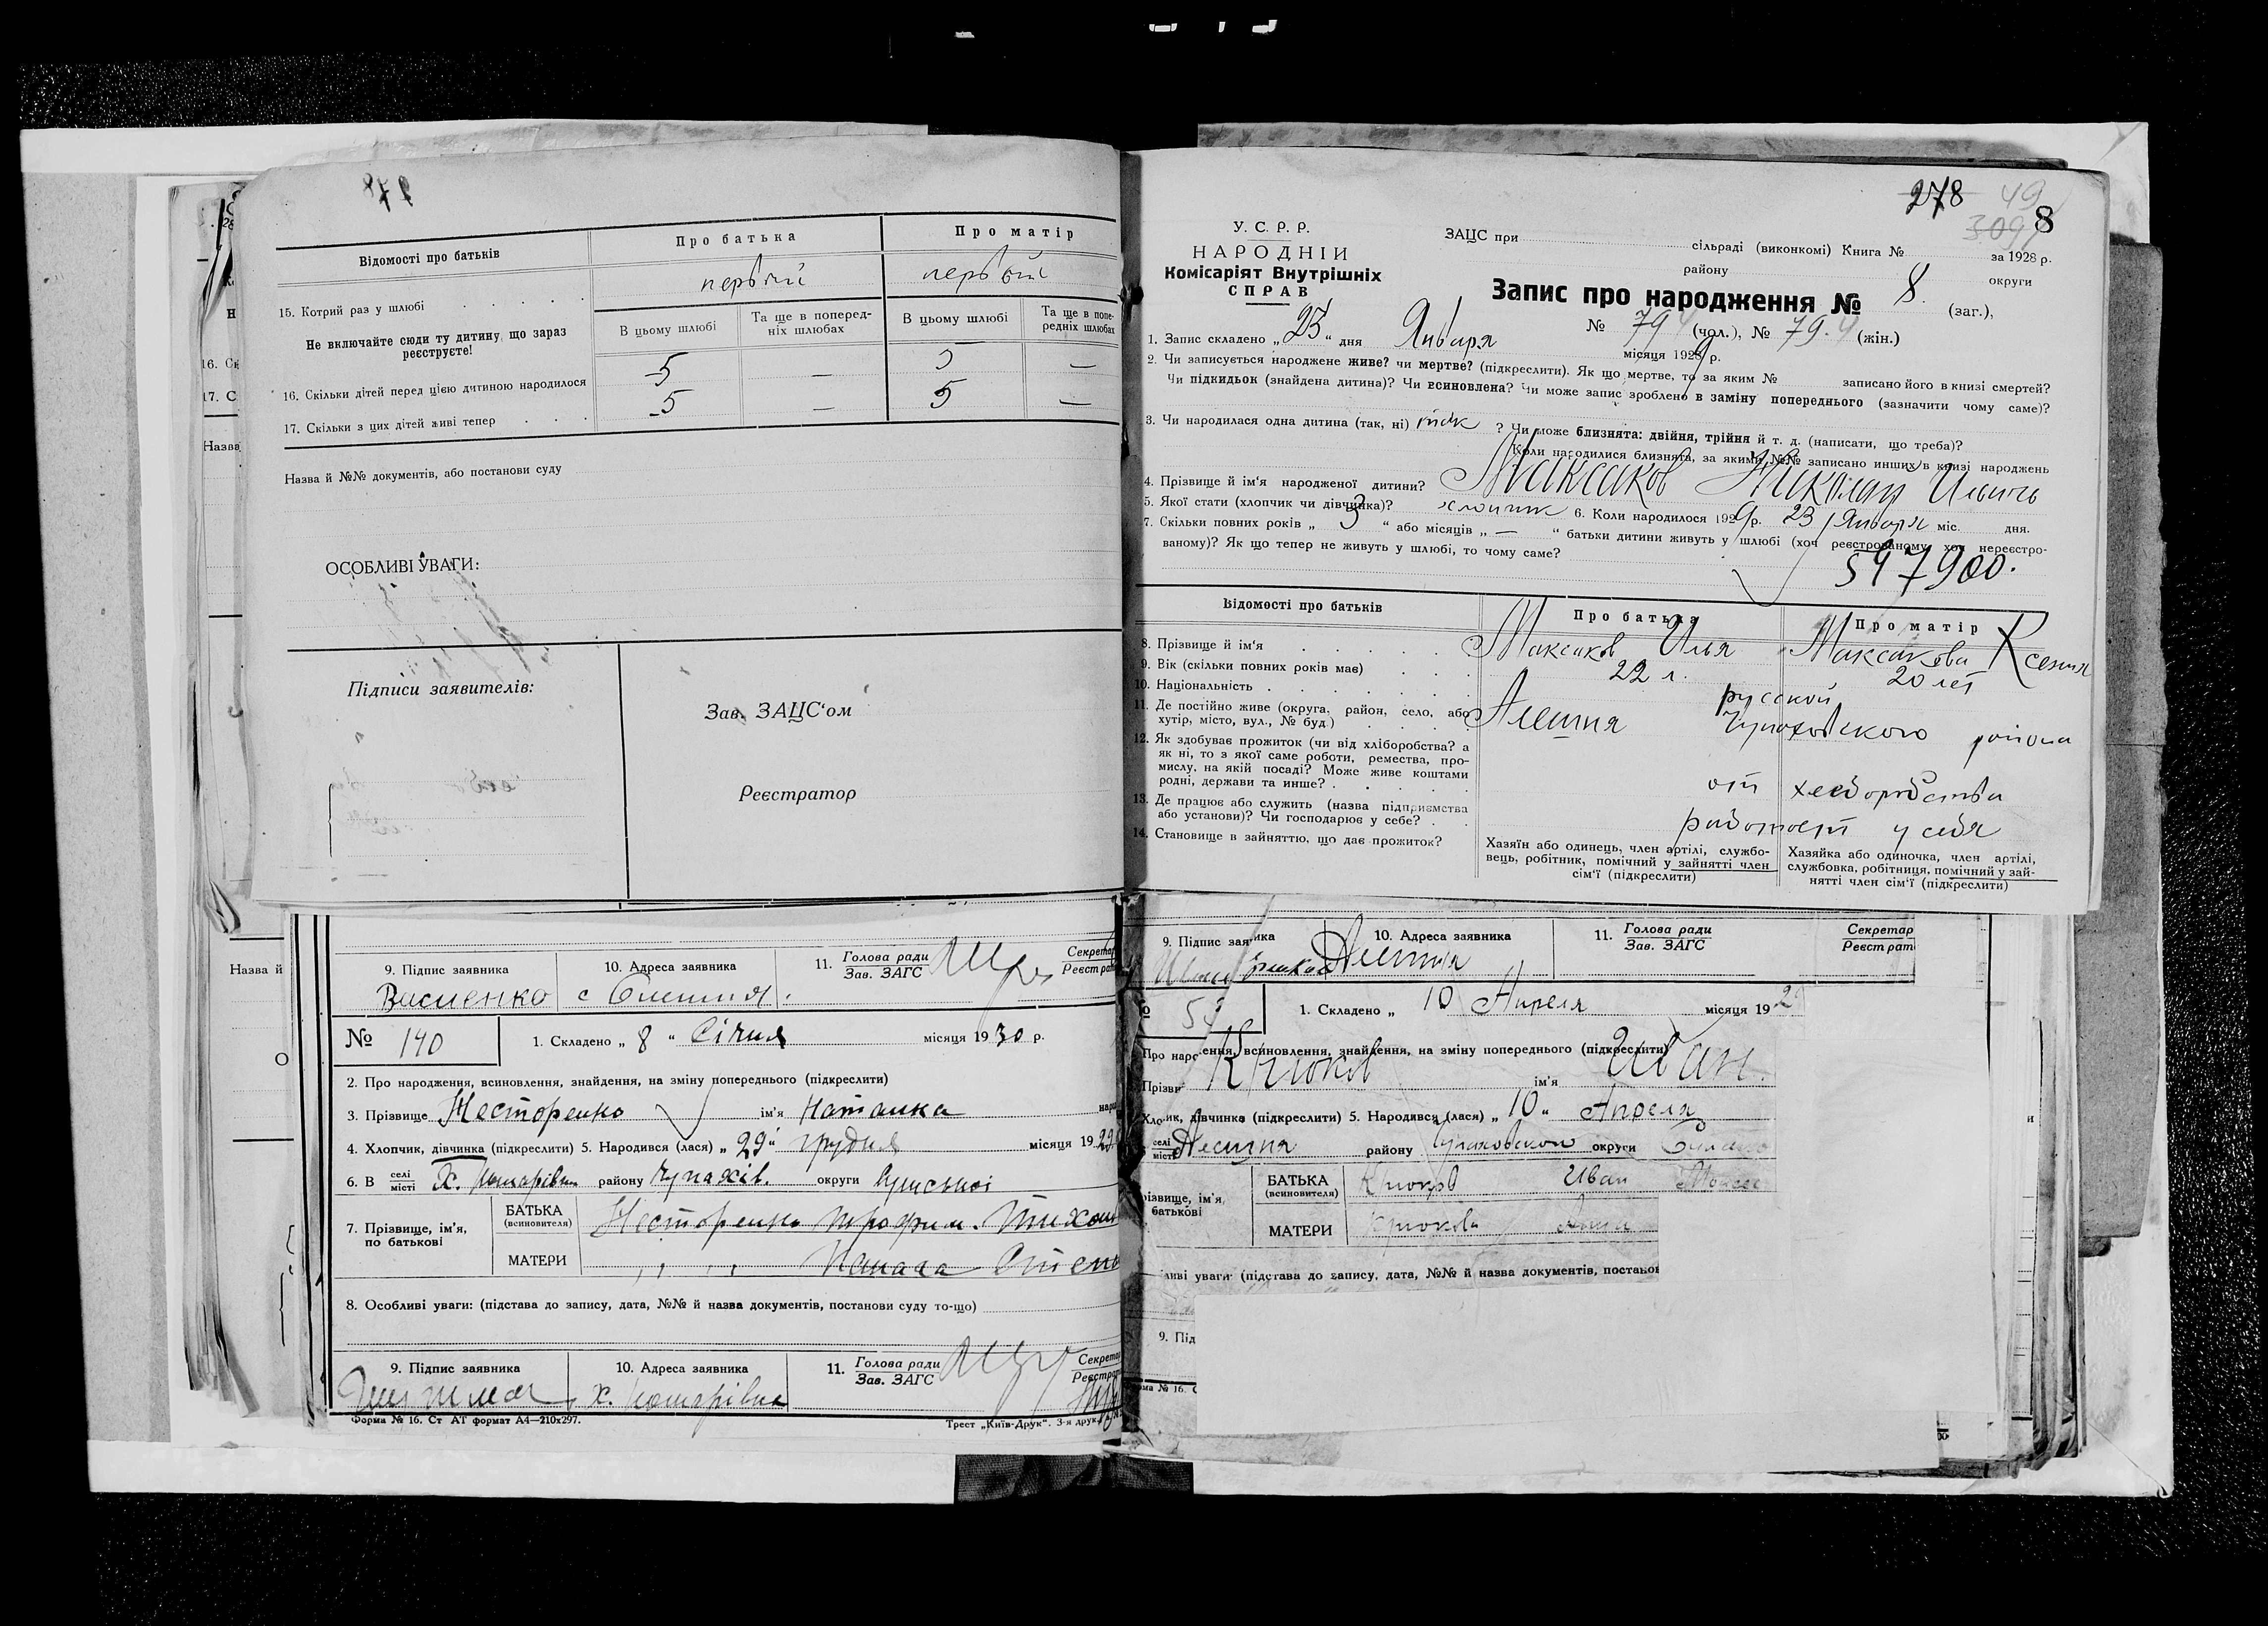 Відомості про батьків
Про батька
Про матір
15. Котрий раз у шлюбі
первый
первый
Не включайте сюди ту дитину, що зараз реєструєте!
В цьому шлюбі
Та ще в поперед-
ніх шлюбах
В цьому шлюбі
Та ще в попе-
редніх шлюбах
16. Скільки дітей перед цією дитиною народилося
5 — 5 —
17. Скільки з цих дітей живі тепер
5 — 5 —
Назва й №№ документів, або постанови суду
ОСОБЛИВІ УВАГИ:
Підписи заявителів:
Зав. ЗАЦС'ом
Реєстратор
9. Підпис заявника
10. Адреса заявника
11. Голова ради
Зав. ЗАГС
Секретар
Реєстрат
Василенко
№ 140
1. Складено „ 8 “ Січня місяця 1930 р.
2. Про народження, всиновлення, знайдення, на зміну попереднього (підкреслити)
3. Прізвище Несторенко ім'я Наталка
4. Хлопчик, дівчинка (підкреслити) 5. Народився (лася) „ 29 “ грудня місяця 1929
6. В селі
місті
району Чупахів. округи Сумської
7. Прізвище, ім'я,
по батькові
БАТЬКА
(всиновителя)
Несторенко Трофим Тихон
МАТЕРИ
8. Особливі уваги: (підстава до запису, дата, №№ й назва документів, постанови суду то-що)
9. Підпис заявника
10. Адреса заявника
11. Голова ради
Зав. ЗАГС
Форма № 16. Ст АТ формат А4—210х297.
Трест „Київ-Друк“. 3-я друк.
278
49
8
У. С. Р. Р.
НАРОДНІЙ
Комісаріят Внутрішніх
СПРАВ
ЗАЦС при сільраді (виконкомі) Книга № за 1928 р.
району округи
Запис про народження № 8. (заг.),
№ 79 (чол.), № 79. (жін.)
1. Запис складено „ 23 “ дня Января місяця 1929 р.
2. Чи записується народжене живе? чи мертве? (підкреслити). Як що мертве, то за яким № записано його в книзі смертей?
Чи підкидьок (знайдена дитина)? Чи всиновлена? Чи може запис зроблено в заміну попереднього (зазначити чому саме)?
3. Чи народилася одна дитина (так, ні) так ? Чи може близнята: двійня, трійня й т. д. (написати, що треба)?
Коли народилися близнята, за якими №№ записано инших в книзі народжень
4. Прізвище й ім'я народженої дитини? Максаков Николай Ильич
5. Якої стати (хлопчик чи дівчинка)? хлопчик 6. Коли народилося 1929 р. 23 / Января міс. дня.
7. Скільки повних років „ 3 “ або місяців „ — “ батьки дитини живуть у шлюбі (хоч реєстрованому, хоч нереєстро-
ваному)? Як що тепер не живуть у шлюбі, то чому саме?
597900.
Відомості про батьків
Про батька
Про матір
8. Прізвище й ім'я Максаков Илья Максакова Ксения
9. Вік (скільки повних років має) 22 л. 20 лет
10. Національність русской
11. Де постійно живе (округа, район, село, або
хутір, місто, вул., № буд.) Алешня Чупаховского района
12. Як здобуває прожиток (чи від хліборобства? а
як ні, то з якої саме роботи, ремества, про-
мислу, на якій посаді? Може живе коштами
родні, держави та инше?
от хлеборобства
13. Де працює або служить (назва підприємства
або установи)? Чи господарює у себе?
работает у себя
14. Становище в зайняттю, що дає прожиток?
Хазяїн або одинець, член артілі, службо-
вець, робітник, помічний у зайнятті член
сім'ї (підкреслити)
Хазяйка або одиночка, член артілі,
службовка, робітниця, помічний у зай-
нятті член сім'ї (підкреслити)
9. Підпис заявника
10. Адреса заявника
11. Голова ради
Зав. ЗАГС
Секретар
Реєстрат
Алешня
1. Складено „ 10 Апреля місяця 192
ення, всиновлення, знайдення, на зміну попереднього (підкреслити)
Крюков ім'я Иван.
ик, дівчинка (підкреслити) 5. Народився (лася) „ 10 “ Апреля
селі
місті
Алешня району Чупаховского округи
БАТЬКА
(всиновителя)
Крюков Иван
різвище, ім'я,
батькові
МАТЕРИ
Крюкова
ливі уваги (підстава до запису, дата, №№ й назва документів, постанов
9. Під